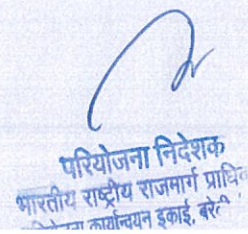 परियोजना निदेशक
भारतीय राष्ट्रीय राजमार्ग
कार्यान्वयन इकाई,